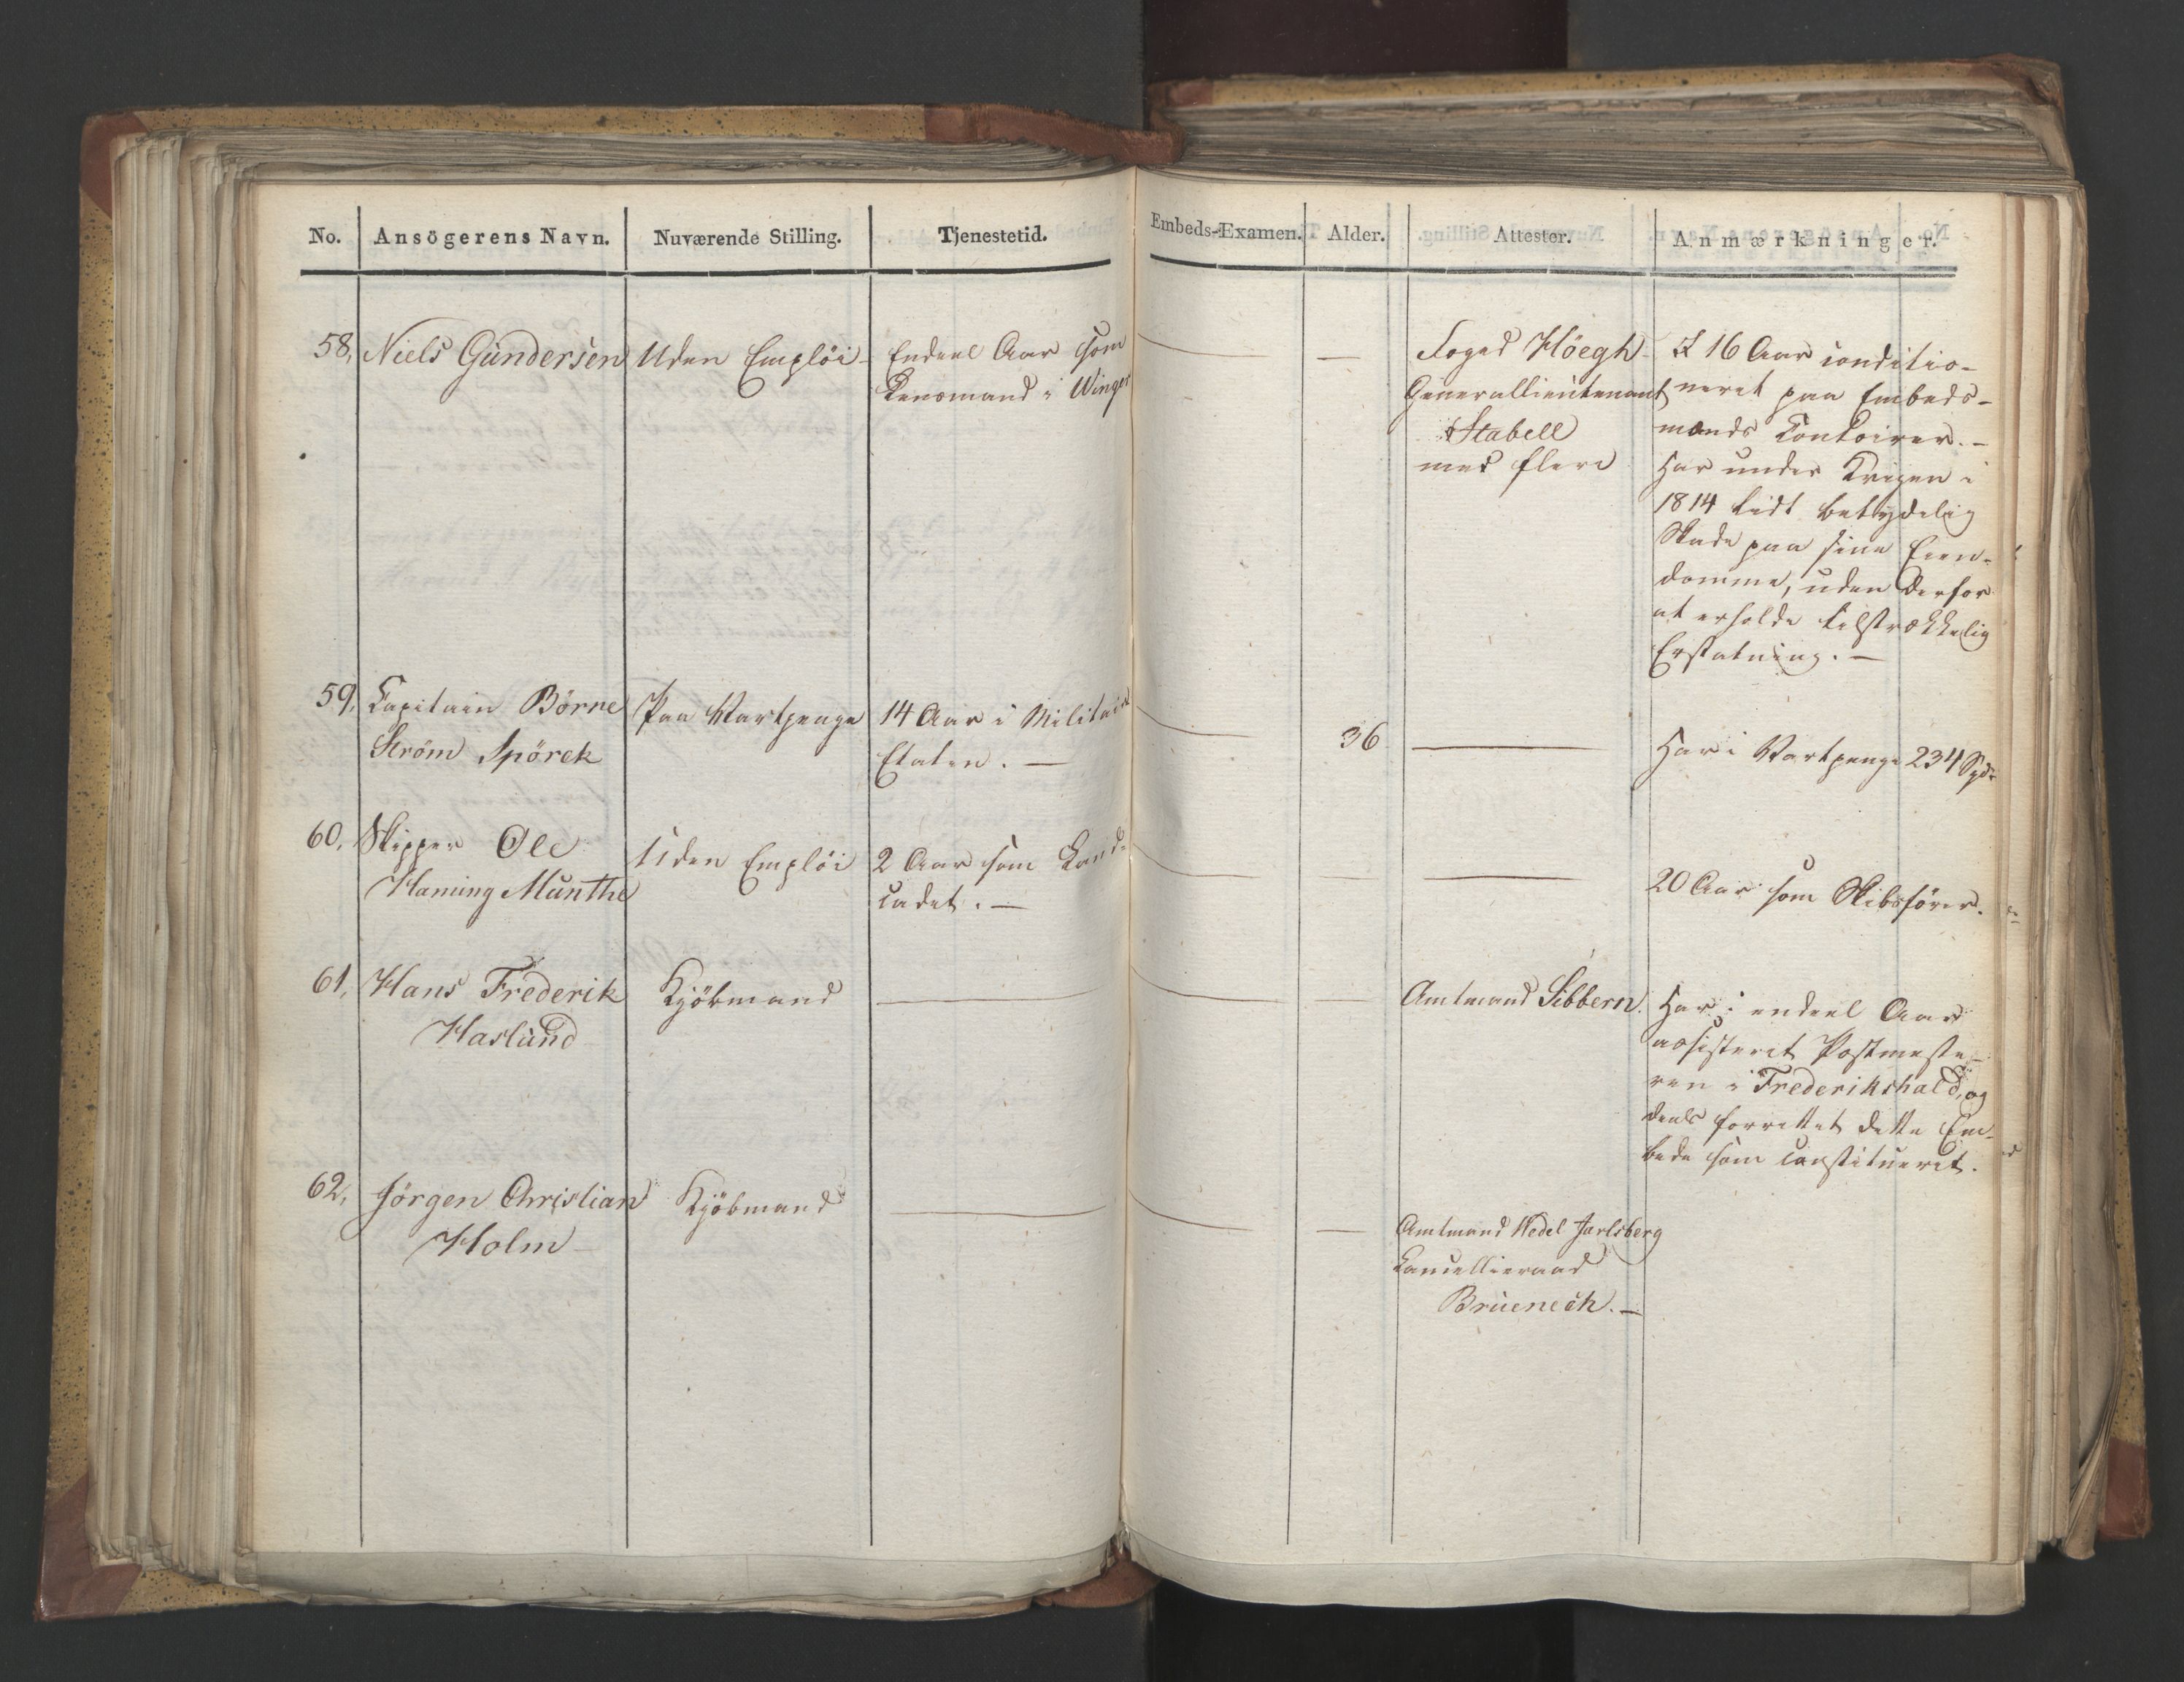 No. Ansögerens Navn. Nuværende Stilling. Tjenestetid. Embeds-Examen. Alder. Attester. Anmærkninger.
58, Niels Gundersen Uden Emplöi Endeel Aar som — — Foged Höegh I 16 Aar conditio-
Lensmand i Winger Generallieutenant neret paa Embeds-
Stabell mænds Contoirer.-
med flere Har under Krigen i
1814 lidt betydelig
Skade paa sine Eien-
domme, uden derfor
at erholde tilstrækkelig
Erstatning. —
59, Capitain Börre Paa Vartpenge 14 Aar i Militair — 36 — Har i Vartpenge 234 Spdr
Ström Spörck Etaten. —
60, Skipper Ole Uden Emplöi 2 Aar som Land- — — — 20 Aar som Skibsförer.
Haning Munthe cadet. —
61, Hans Frederik Kjöbmand — — — Amtmand Sibbern. Har i endeel Aar
Haslund assisteret Postmeste-
ren i Frederikshald, og
deels forrettet dette Em-
bede som constitueret.
62, Jörgen Christian Kjöbmand — — — Amtmand Wedel Jarlsberg
Holm Cancellieraad
Bruenech. —